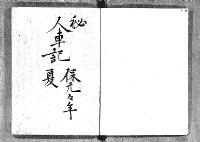 秘
人車記 保元々年
夏